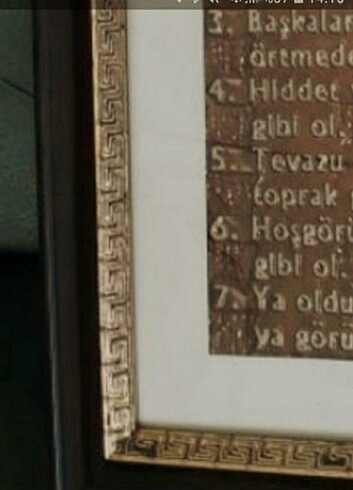 3. Başkalar
örtmede
4. Hiddet
gibi ol.
5. Tevazu
toprak
6. Hoşgörü
gibi ol.
7. Ya oldu
ya görü